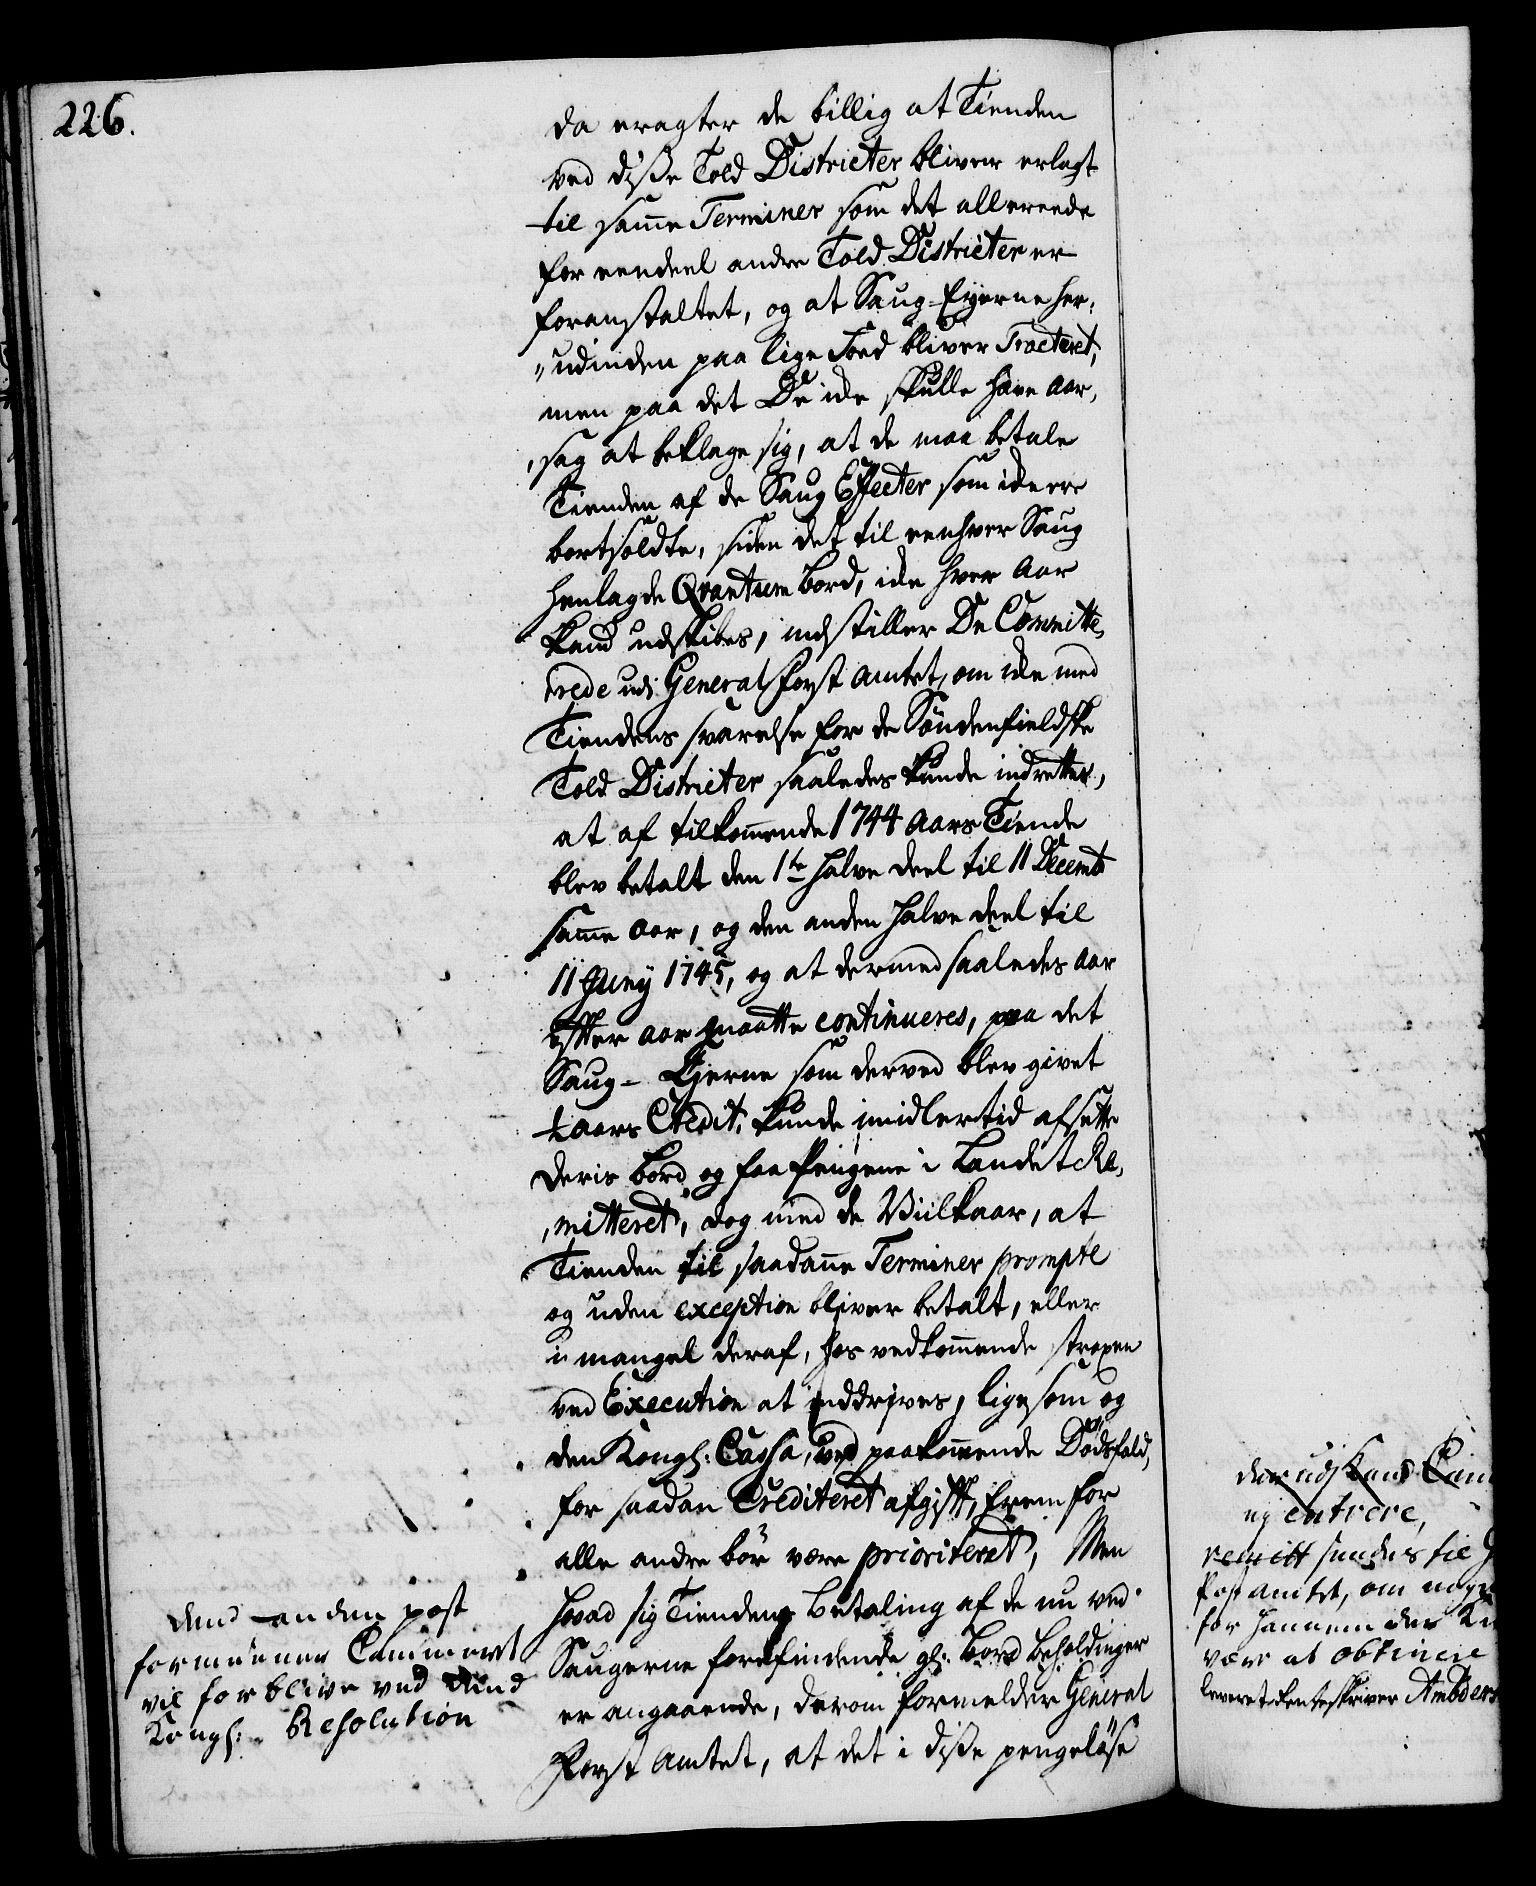 226.
da eragter de billig at Tienden
ved diße Told Districter bliver erlagt
til samme Terminer som det allereede
for eendeel andre Told Districter er
foranstaltet, og at Saug-Eyerne her,
„udinden paa lige Foed bliver Tracteret,
men paa det De icke skulle have Aar,
„sag at beklage sig, at de maa betale
Tienden af de Saug Effecter som icke ere
bortsoldte, siden det til eenhver Saug
henlagde Qvantum Bord, icke hver Aar
kand udskibes, indstiller De Committe,
rede udi General Forst Amtet, om icke med
Tiendens svarelse for de Søndenfieldske
Told Districter saaledes kunde indrettes,
at af tilkommende 1744 Aars Tiende
blev betalt den 1te halve deel til 11 Decemb
samme Aar, og den anden halve deel til
11 Juny 1745, og at dermed saaledes Aar
efter Aar maatte continueres, paa det
Saug-Ejerne som derved blev givet
½ Aars Credit, kunde imidlertid afsette
deris Bord og faa Pengene i Landet Re,
„mitteret, dog med de Vilkaar, at
Tienden til saadanne Terminer prompte
og uden exception bliver betalt, eller
i mangel deraf, hos vedkommende straxen
ved Execution at inddrives, ligesom og
den Kongl: Cassa, ved paakommende Dødsfald,
for saadan Crediteret afgift, frem for
alle andre bør være prioriteret, Men
hvad sig Tiendens Betaling af de nu ved
Saugerne forefindende gl: Bord Beholdinger
er angaaende, derom formelder General
Forst Amtet, at det i diße pengeløse
dend anden post
formeener Cammeret
vil forblive ved dend
Kongl: Resolution
der udj kand Cam
ej entrere,
remitt sendes til
Post Amtet, om noge
for hannem der
være at obtinere